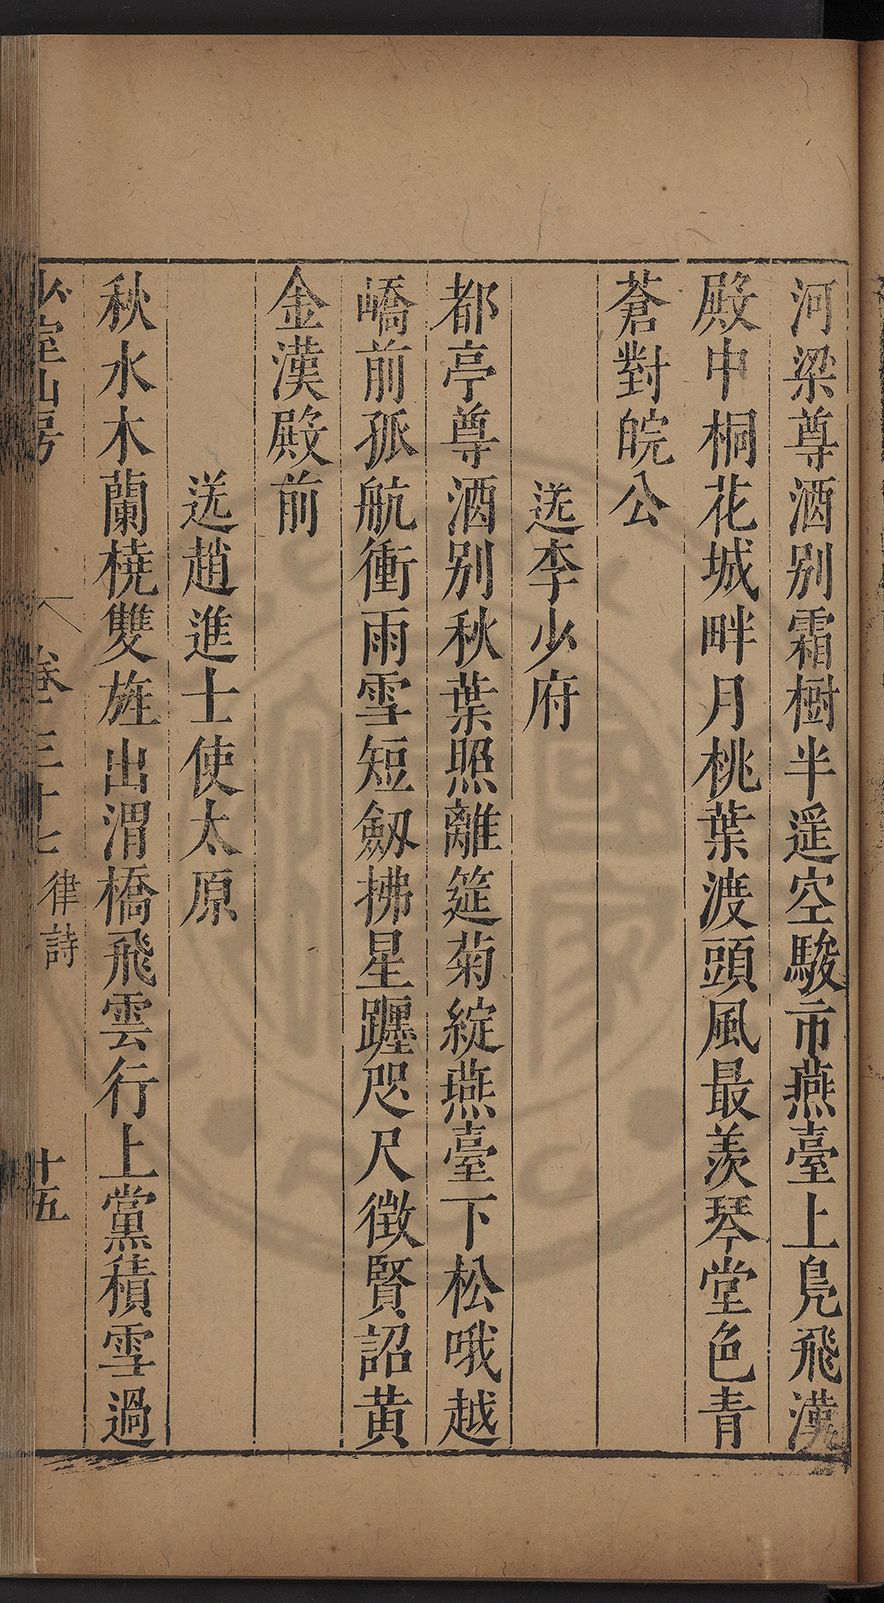 河梁尊酒别霜樹半遥空駿市燕臺上鳧飛漢
殿中桐花城畔月桃葉渡頭風最羨琴堂色青
蒼對皖公
送李少府
都亭尊酒别秋葉照離筵菊綻燕臺下松哦越
嶠前孤航衝雨雪短劔拂星躔咫尺徴賢詔黄
金漢殿前
送趙進士使太原
秋水木蘭橈雙旌出渭橋飛雲行上黨積雪過
少室山房
卷三十七
律詩
十五